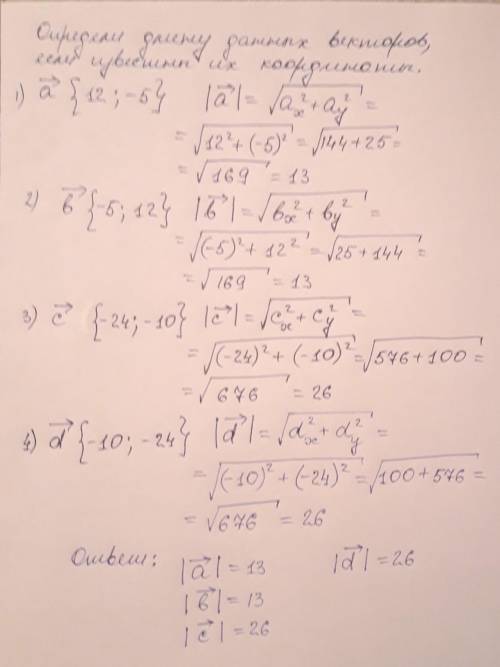 Определи длину данных векторов,
если известны их координаты.
1) a⃗ {12; -5} |a⃗| = √(aₓ² + a_y²) =
= √(12² + (-5)²) = √(144 + 25) =
= √169 = 13
2) b⃗ {-5; 12} |b⃗| = √(bₓ² + b_y²) =
= √((-5)² + 12²) = √(25 + 144) =
= √169 = 13
3) c⃗ {-24; -10} |c⃗| = √(cₓ² + c_y²) =
= √((-24)² + (-10)²) = √(576 + 100) =
= √676 = 26
4) d⃗ {-10; -24} |d⃗| = √(dₓ² + d_y²) =
= √((-10)² + (-24)²) = √(100 + 576) =
= √676 = 26
Ответ: |a⃗| = 13 |d⃗| = 26
|b⃗| = 13
|c⃗| = 26